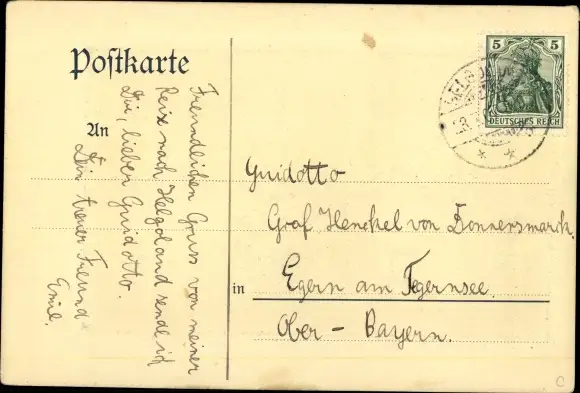 Postkarte
An
Freundlichen Gruss von meiner
Reise nach Helgoland sende ich
Dir, lieber Guidotto.
Dein treuer Freund
Emil.
5 5
DEUTSCHES REICH
Guidotto
Graf Henckel von Donnersmarck.
in Egern am Tegernsee.
Ober - Bayern.